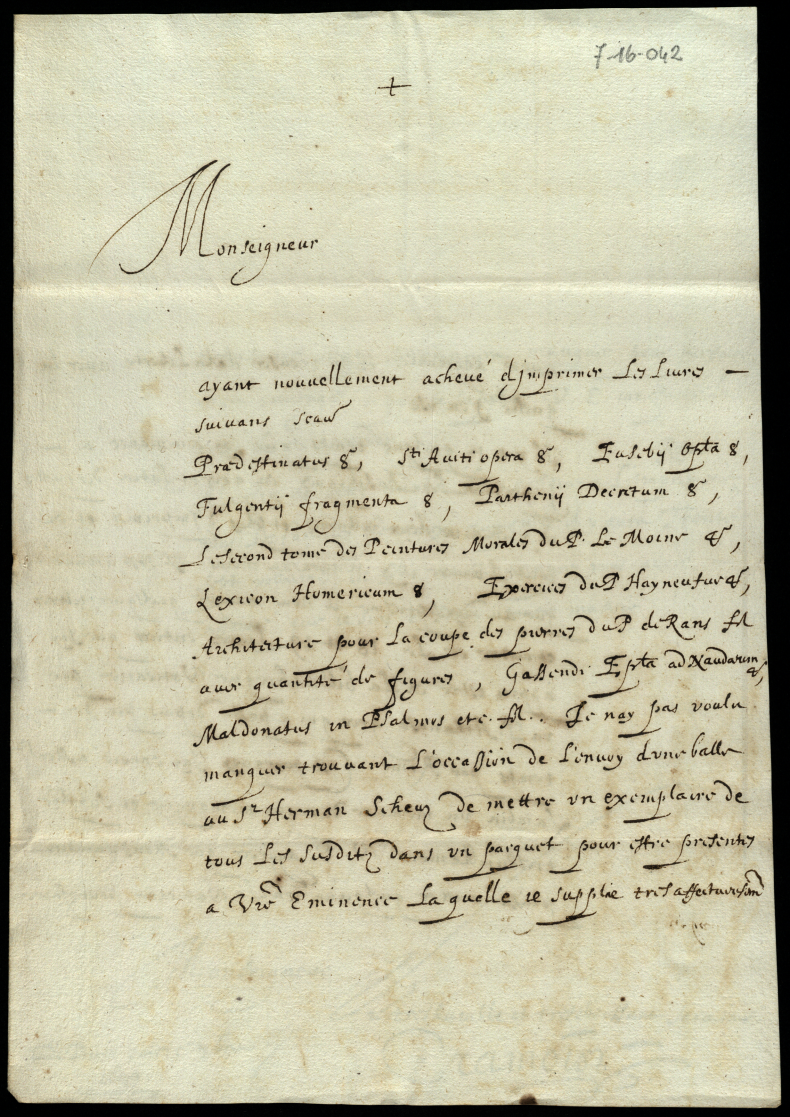 7-16-042
+
Monseigneur
ayant nouvellement achevé d'jmprimer Les Livres —
suivans scau͞r
Prædestinatus 8º, Sti Aviti opera 8º, Eusebij opta 8,
Fulgentij fragmenta 8, Parthenij Decretum 8,
Le second tome des Peintures Morales du P. Le Moine 4º,
Lexicon Homericum 8, Exercices du P Hayneufue 4º,
Architecture pour La coupe des pierres du P de Rans fol
avec quantité de figures, Gassendi Epta ad Naudæum 4º,
Maldonatus in Psalmos etc. fol.. Je nay pas voulu
manquer trouvant L'occassion de L'envoy d'une balle
au Sr Herman Scheuz de mettre un exemplaire de
tous Les susditz dans un pacquet pour estre presentes
a Vre Eminence La quelle ie supplie tres affectueusemt